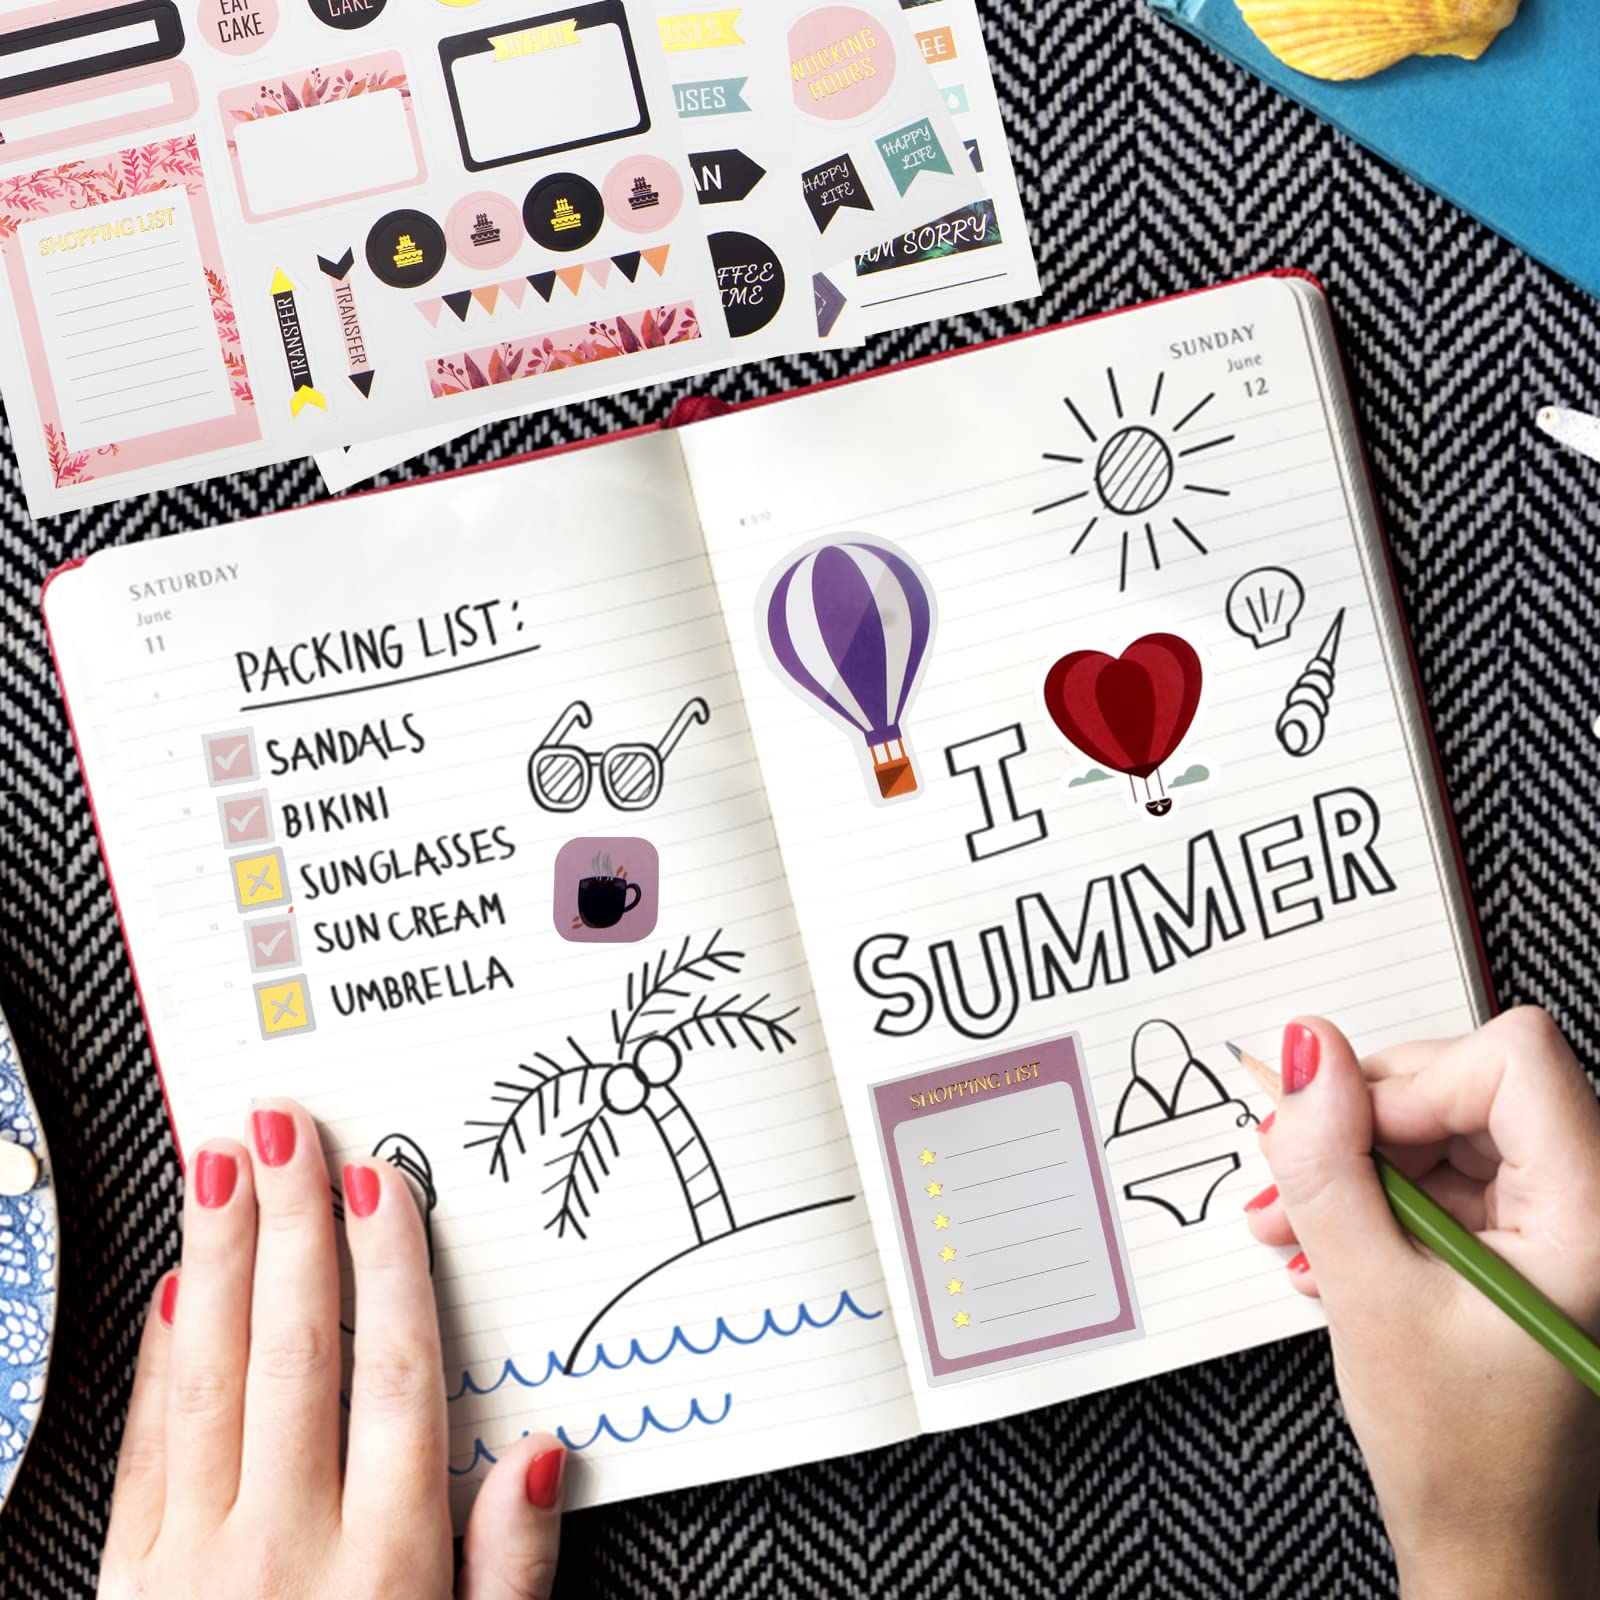 EAT
CAKE
CAKE
SHOPPING LIST
TRANSFER
TRANSFER
WORKING
HOURS
HAPPY
LIFE
HAPPY
LIFE
AM SORRY
SATURDAY
June
11
PACKING LIST:
SANDALS
BIKINI
SUNGLASSES
SUN CREAM
UMBRELLA
SUNDAY
June
12
I
SUMMER
SHOPPING LIST